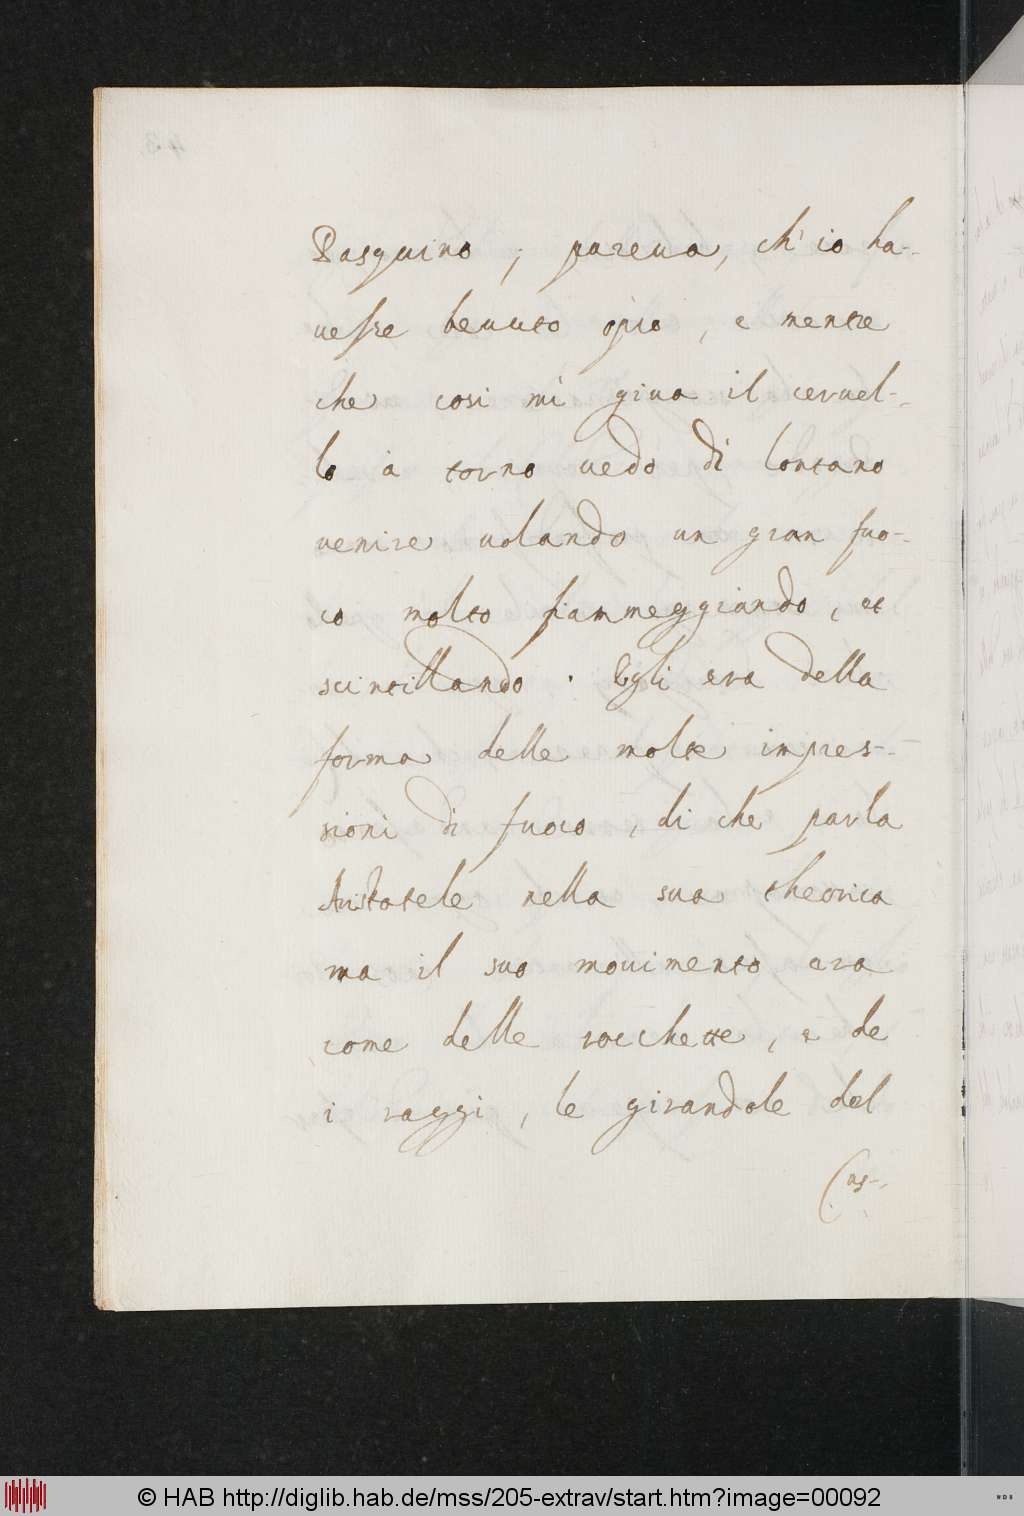 Pasquino, pareua, ch'io ha-
uesse beuuto opio, e mentre
che cosi mi giua il ceruel-
lo à torno uedo di lontano
uenire uolando un gran fuo-
co molto fiammeggiando, et
scintillando. Egli era della
forma delle molte impres-
sioni di fuoco, di che parla
Aristotele nella sua theorica
ma il suo mouimento era
come delle rocchette, e de
i raggi, le girandole del
Cas-
© HAB http://diglib.hab.de/mss/205-extrav/start.htm?image=00092